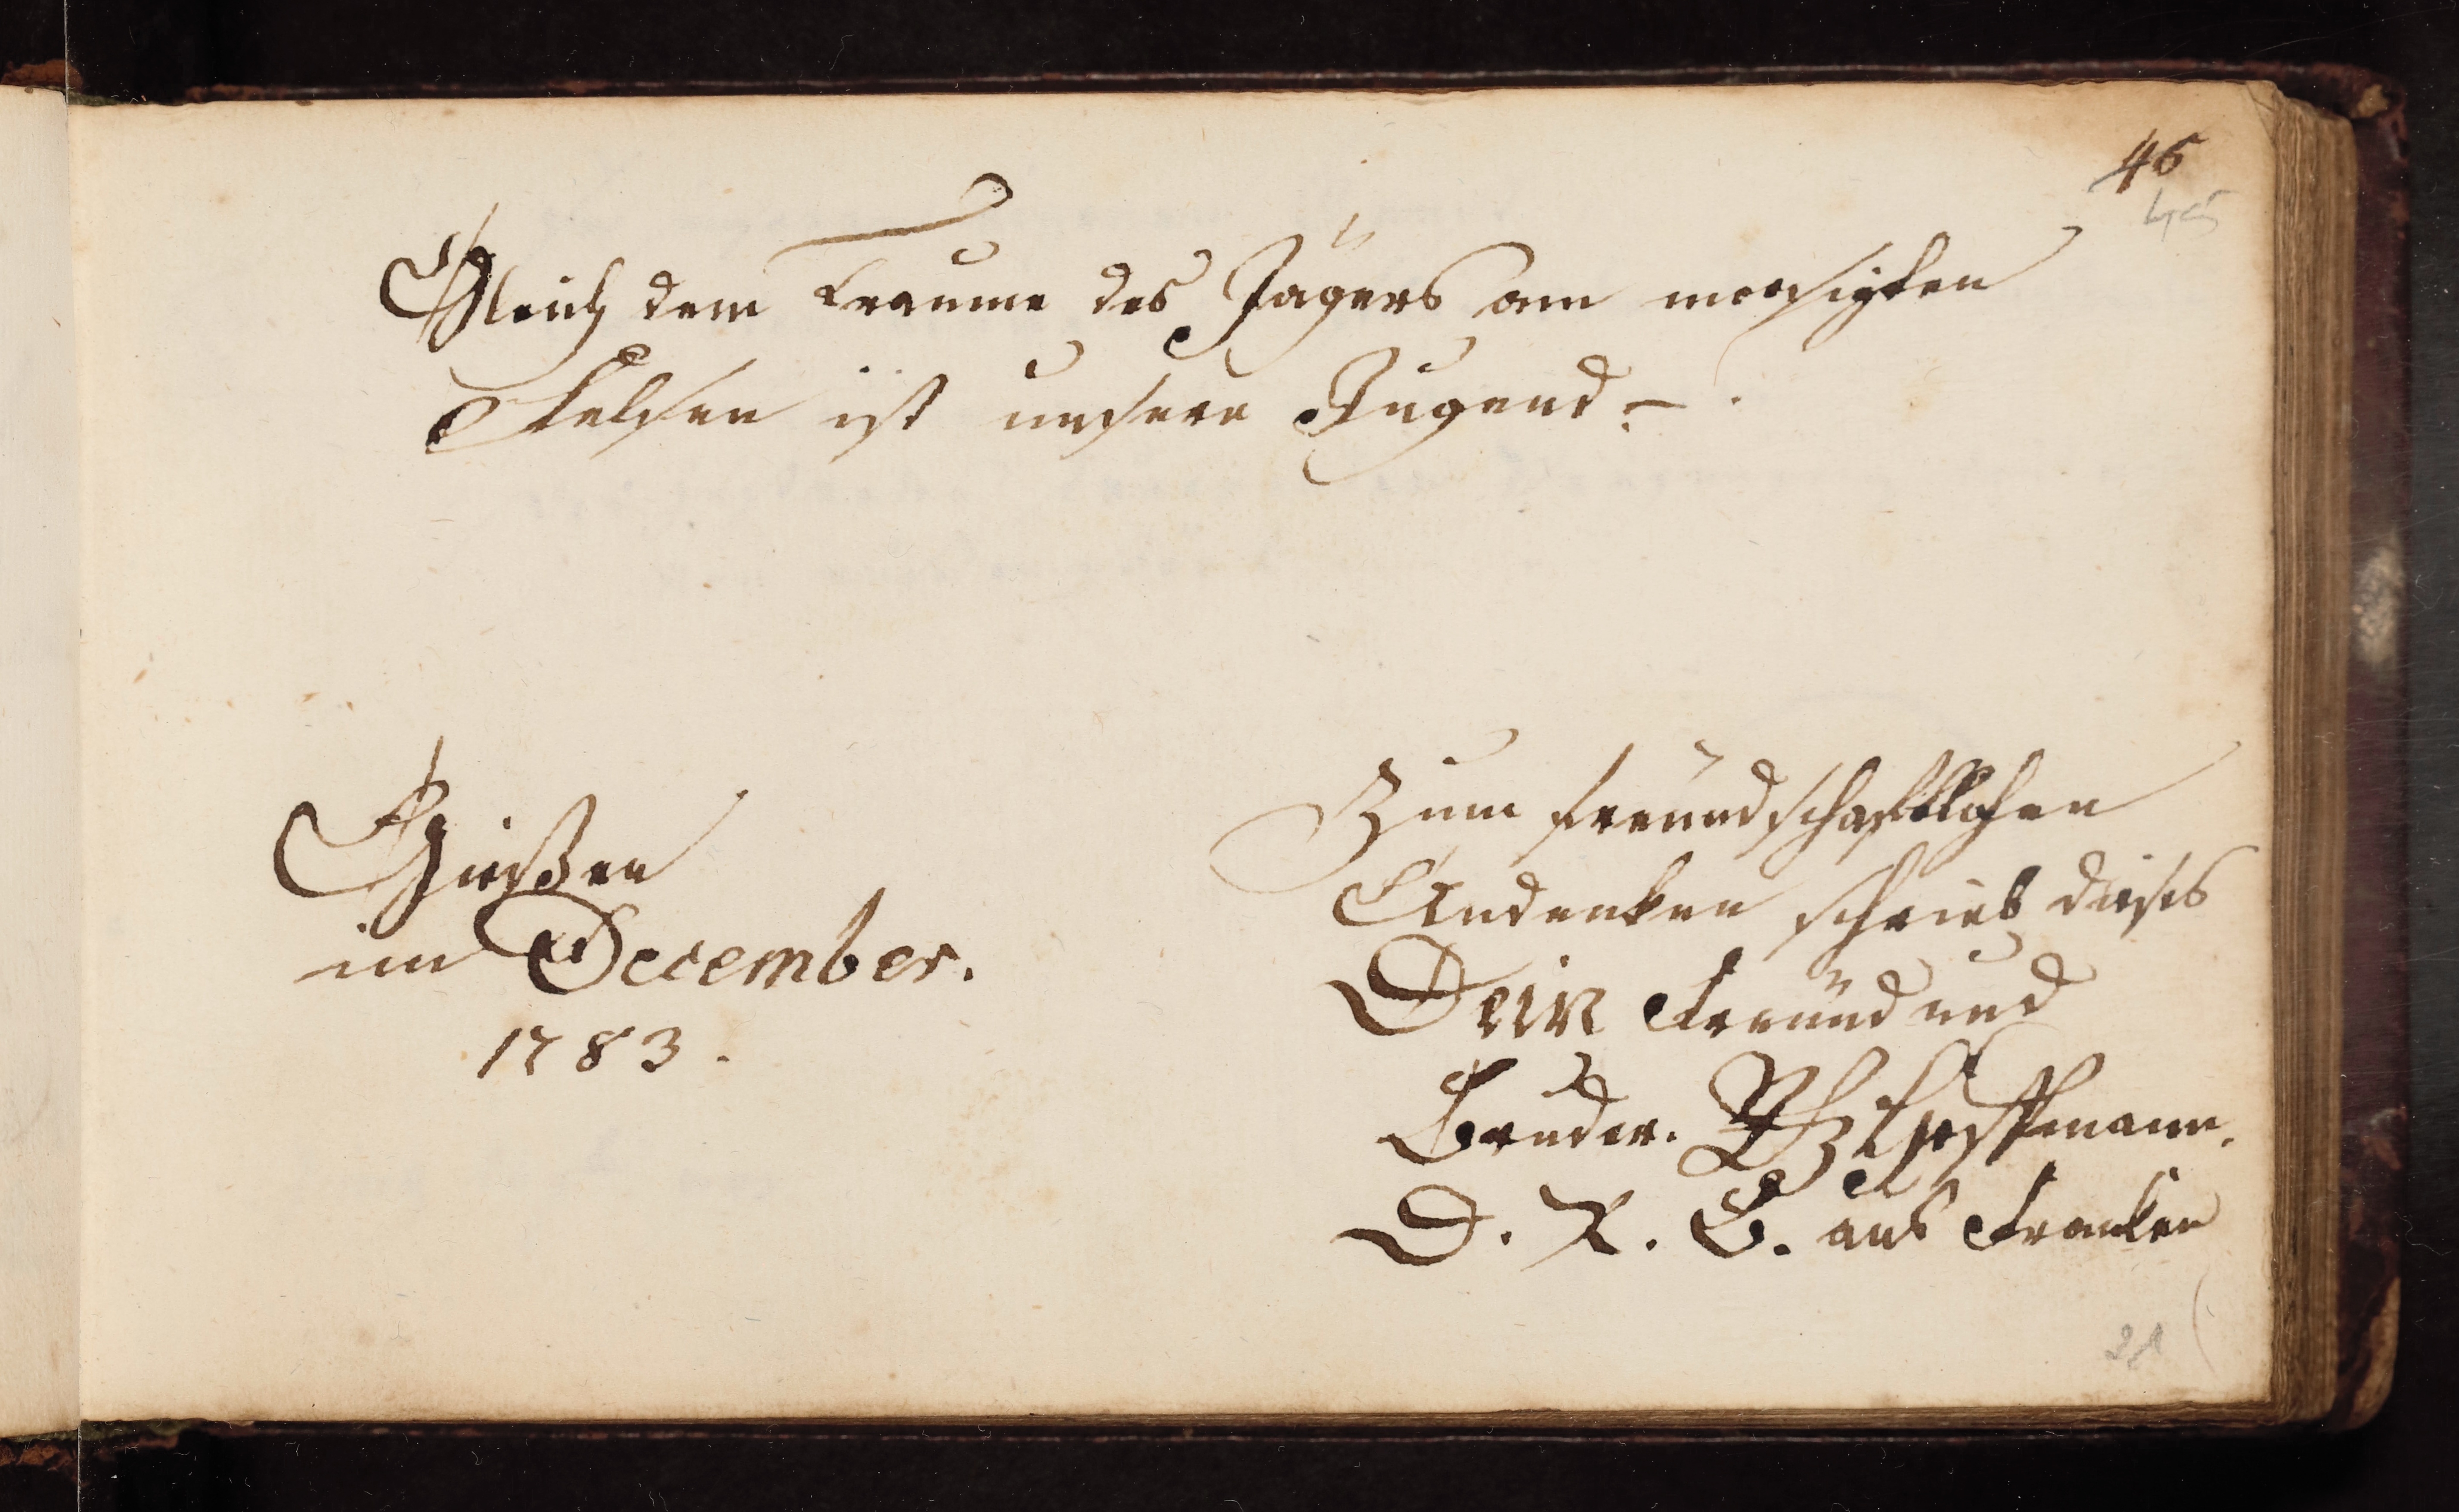 46
45
Gleich dem Traume des Jägers am moosigten
Felsen ist unsere Jugend –.
Gießen
im December.
1783.
Zum freundschaftlichen
Andenken schrieb dieses
Dein Freund und
Bruder.
D. R. B. aus Franken
21